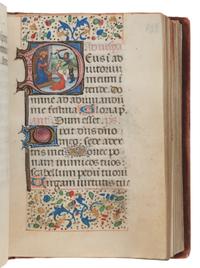 Ad vesperas
Deus i ad
iutorium
meum i
tende. do
mine ad adiuuandu
me festina Gloria p
Dum esset. ps
Dixit dns dno
meo: sede a dex
tris meis Donec ponam
inimicos tuos:
scabellum pedum tuoru
Virgam uirtutis tue